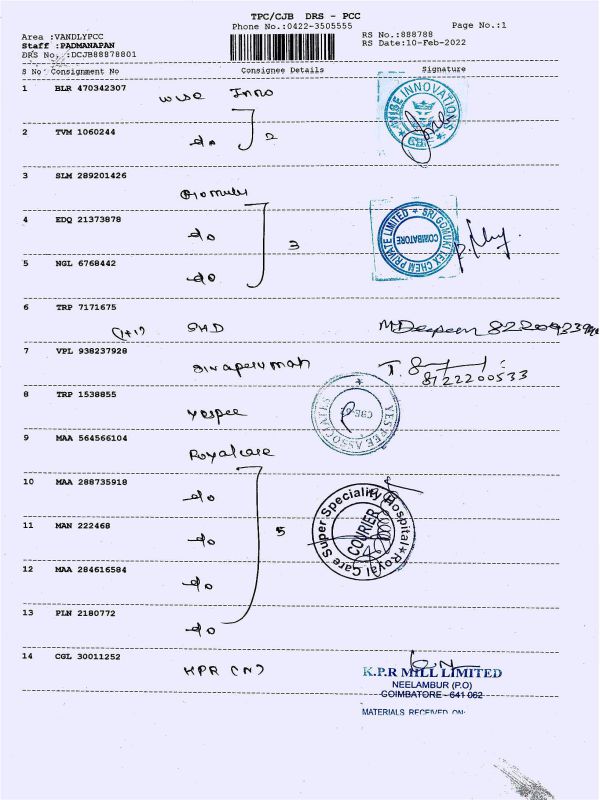 TPC/CJB DRS - PCC
Phone No.:0422-3505555
Page No.:1
Area :VANDLYPCC
RS No.:888788
Staff :PADMANAPAN
RS Date:10-Feb-2022
DRS No. :DCJB88878801
S No Consignment No Consignee Details Signature
1 BLR 470342307 Wise Inno
WISE INNOVATIONS
CBE
2 TVM 1060244 do 2
3 SLM 289201426 Gomuki
4 EDQ 21373878 do 3
SRI GOMUKI TEX CHEM PRIVATE LIMITED
COIMBATORE
5 NGL 6768442 do
6 TRP 7171675 (1+1) SHD M.Deepan
7 VPL 938237928 Sivaperumah T.
8122200533
8 TRP 1538855 Yespee
YES PEE ASSOCIATES
CBE-6
9 MAA 564566104 Royalcare
10 MAA 288735918 do
11 MAN 222468 do 5
Royal Care Super Speciality Hospital
COURIER
12 MAA 284616584 do
13 PLN 2180772 do
14 CGL 30011252 KPR (N)
K.P.R MILL LIMITED
NEELAMBUR (P.O)
COIMBATORE - 641 062
MATERIALS RECEIVED ON: